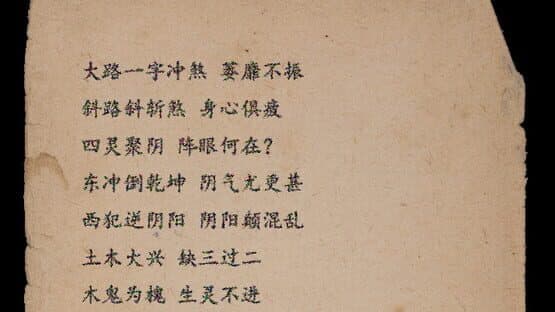 大路一字冲煞 萎靡不振
斜路斜斩煞 身心俱疲
四灵聚阴 阵眼何在？
东冲倒乾坤 阴气尤更甚
西犯逆阴阳 阴阳颠混乱
土木大兴 缺三过二
木鬼为槐 生灵不进